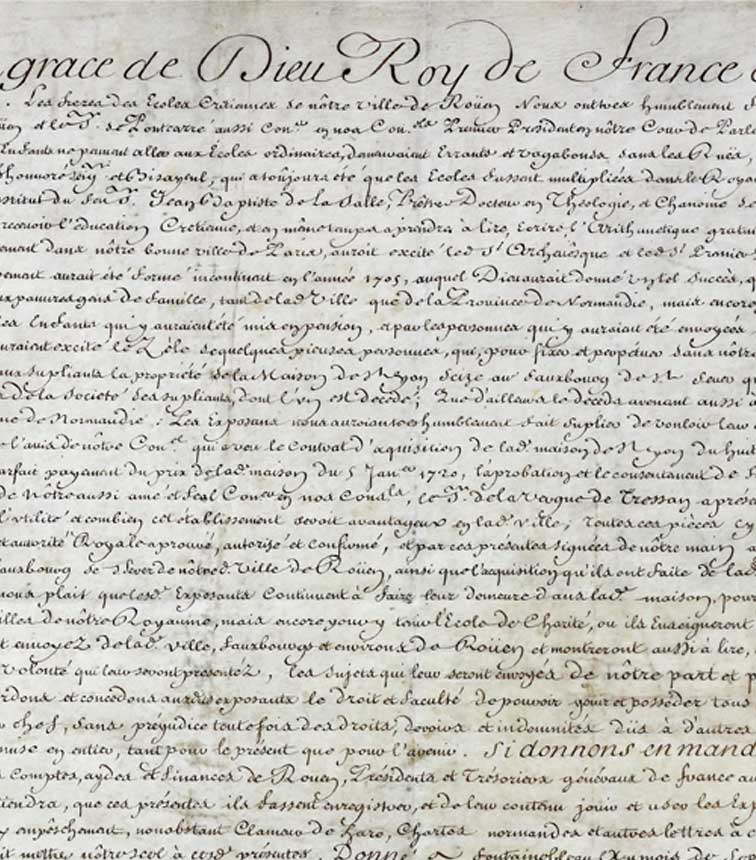 grace de Dieu Roy de France
. Les freres des Ecoles Cretiennes de nôtre ville de Roüen Nous ont tres humblement
et le Sr. de Pontcarré aussi Conr. en nos Conls. Premier President en nôtre Cour de Parle
Enfants ne pouvant aller aux Ecoles ordinaires, demeuraient Errants et vagabons dans les Ruës,
honnoré Seigr. et Bisayeul, qui a toûjours été que les Ecoles fussent multipliées dans le Royau
stitut du feu Sr. Jean Baptiste de la Salle, Prêtre Docteur en Théologie, et Chanoine de
recevoir l'éducation Cretienne, et en même temps aprendre a lire, Ecrire, l'Arithmetique gratui
ement dans nôtre bonne ville de Paris, auroit excité led. Sr. Archevesque et led. Sr. Premier
ement aurait été formé incontinent en l'année 1705, auquel Dieu aurait donné un tel succes, q
ux pauvres gens de famille, tant de lad. Ville que de la Province de Normandie, mais encore
es Enfants qui y auraient été mis en pension, et par les personnes qui y auraient été envoyées
uraient excité le Zéle de quelques pieuses personnes, qui, pour fixer et perpetuer dans nôtre
aux supliants la propriété de la Maison de St. Yon Scize au fauxbourg de St. Sever qu
de la Societé des supliants, dont l'un est decedé; Que d'ailleurs le decéds avenant aussi a
ne de Normandie: Les Exposans nous auroient tres humblement fait suplier de vouloir leur
e l'avis de nôtre Conel. qui a veu le Contrat d'acquisition de lad. maison de St. Yon du huit
arfait payement du prix de lad. maison du 5 Janer. 1720, l'aprobation et le consentement de
de Nôtre aussi amé et feal Coner. en nos Conls., le Sr. de la Vergne de Tressan a present
l'utilité et combien cet établissement seroit avantageux en lad. ville; Toutes ces pièces cy
et autorité Royale aprouvé, autorisé et confirmé, et par ces présentes signées de nôtre main a
auxbourg de St. Sever de nôtred. Ville de Roüen, ainsi que l'acquisition qu'ils ont faite de lad.
nous plait que lesd. Exposants Continuent à faire leur demeure dans lad. maison, pour
illes de nôtre Royaume, mais encore pour y tenir l'Ecole de Charité, ou ils Enseigneront
t envoyez de lad. Ville, fauxbourgs et environs de Roüen et montreront aussi à lire,
volonté qui leur seront presentez, les sujets qui leur seront envoyés de nôtre part et p
rdons et concedons auxdits exposants le droit et faculté de pouvoir jouir et posséder tous
chef, sans préjudice toute fois des droits, devoirs et indemnités düs à d'autres
muse en entier, tant pour le présent que pour l'avenir. Si donnons en mand
s Comptes, aydes et Finances de Roüen, Présidents et Trésoriers généraux de france au
iendra, que ces présentes ils fassent enregistrer, et de leur contenu jouir et user les Exp
y empêchement, nonobstant Clameur de Haro, Chartes normandes et autres lettres à c
it mettre nôtre scel à cesd. présentes. Donné à Fontainebleau au mois de Se